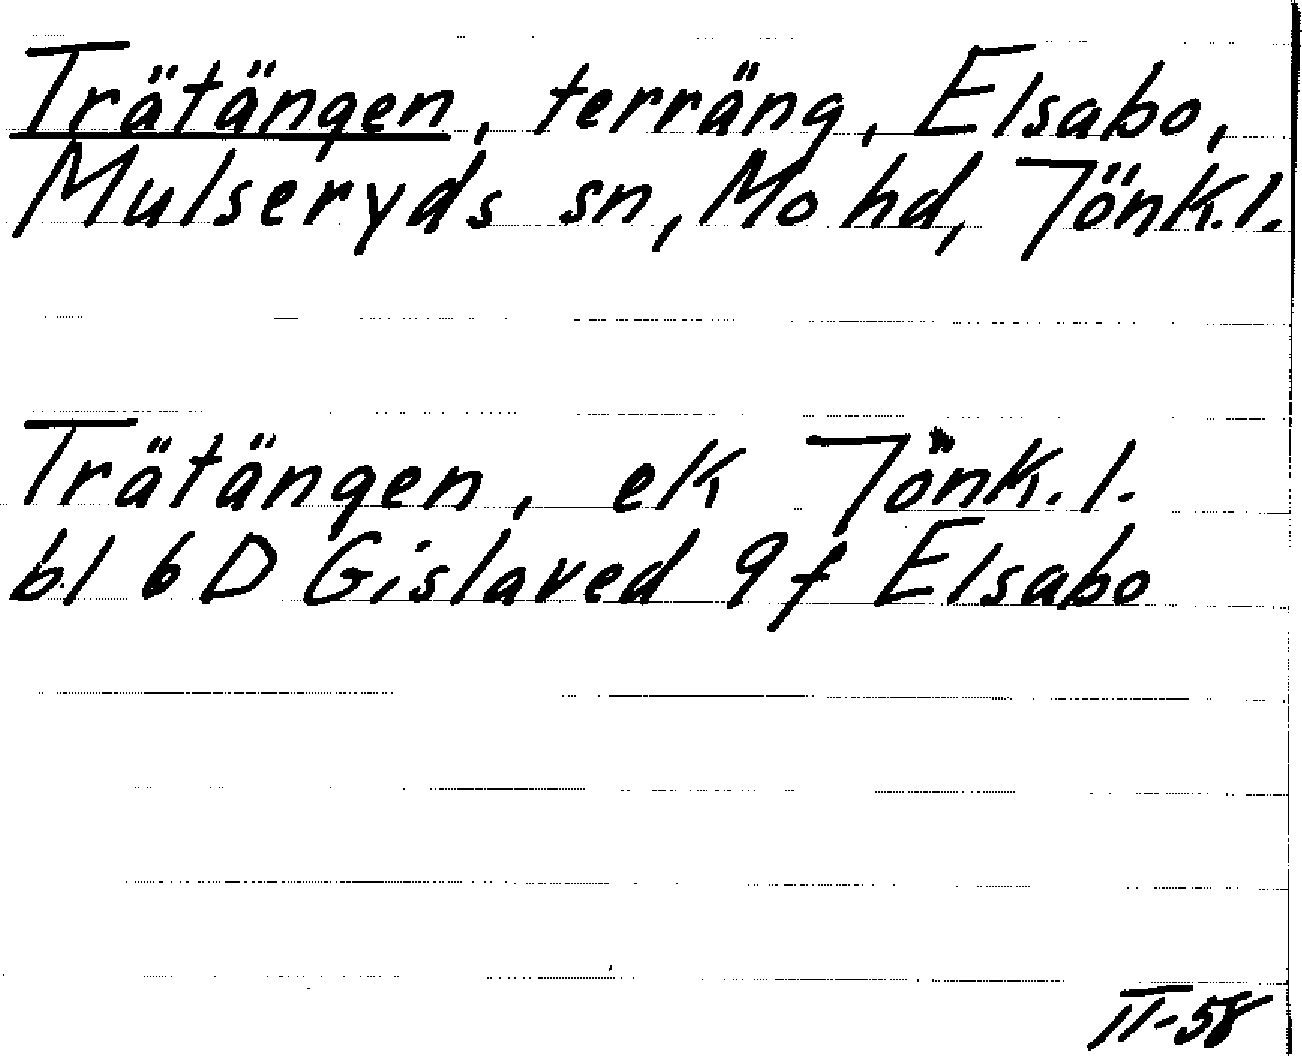 Trätängen, terräng, Elsabo,
Mulseryds sn, Mo hd, Jönk.l.
Trätängen, ek Jönk.l.
bl 6D Gislaved 9f Elsabo
II-58